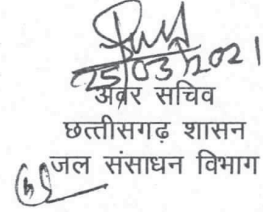 25/03/2021
अवर सचिव
छत्तीसगढ़ शासन
जल संसाधन विभाग